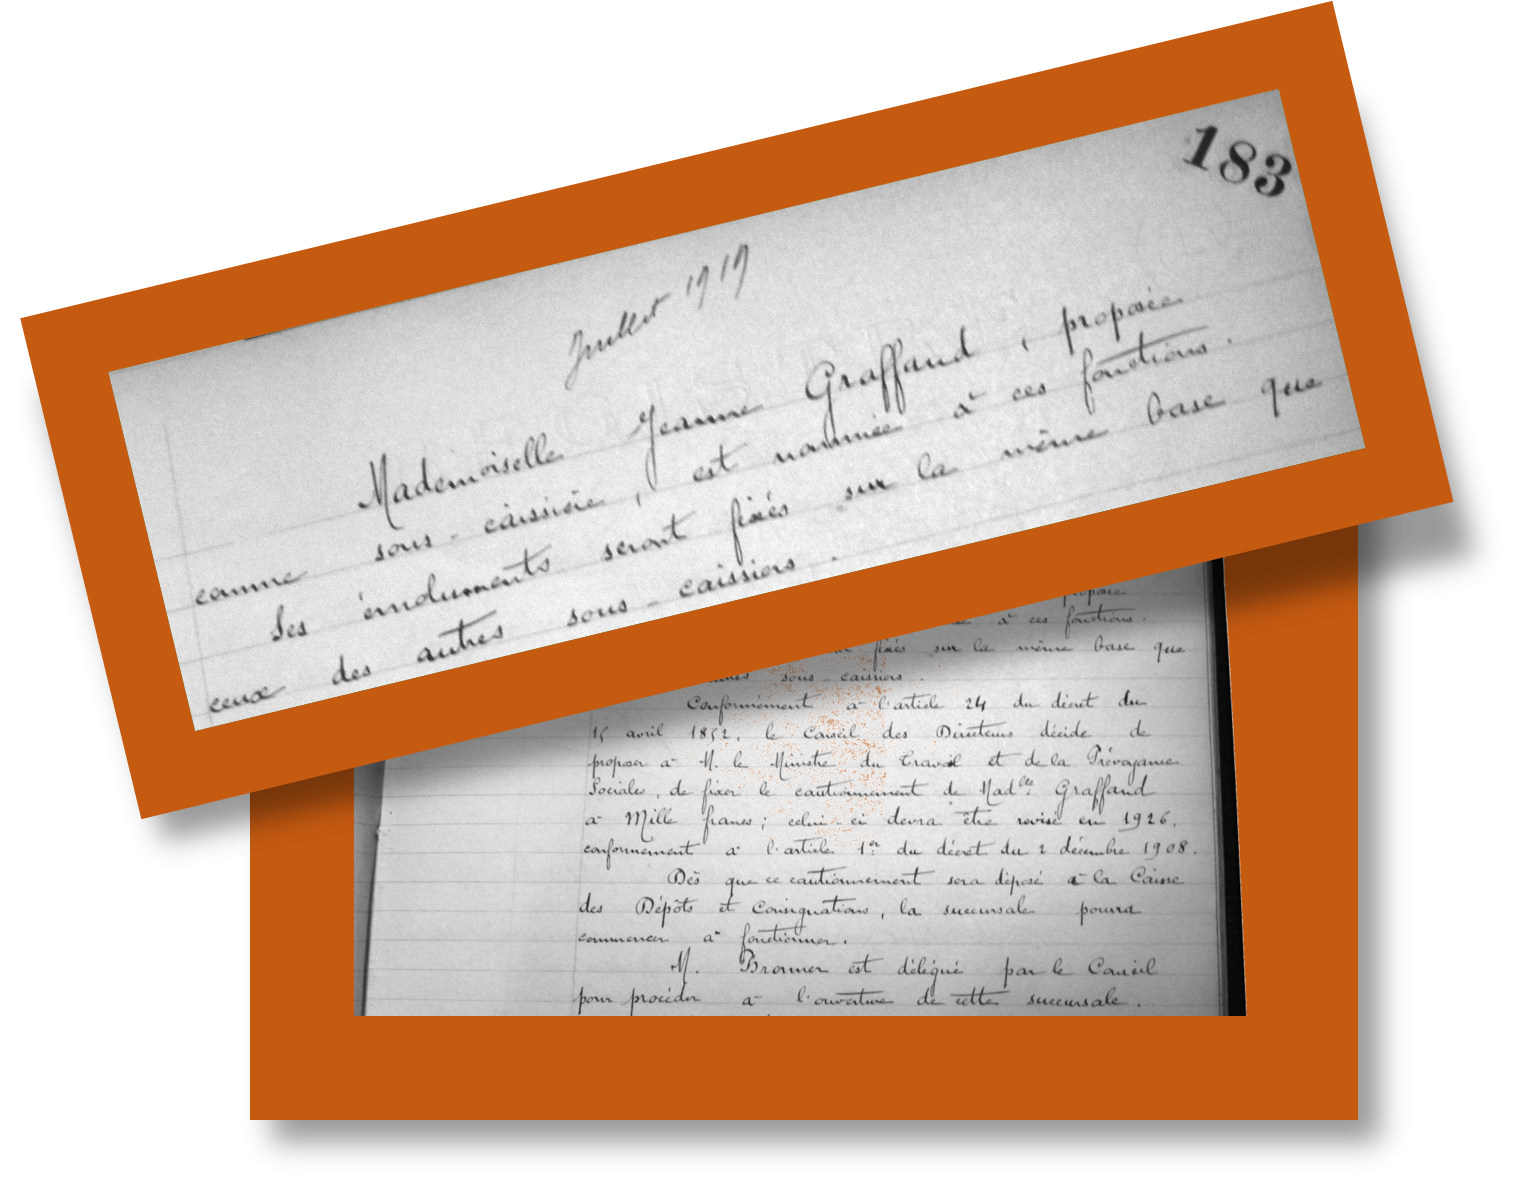 183
Juillet 1919
Mademoiselle Jeanne Graffaud, proposée
comme sous-caissière, est nommée à ces fonctions.
Ses émoluments seront fixés sur la même base que
ceux des autres sous-caissiers.
proposée
à ces fonctions.
fixés sur la même base que
sous-caissiers.
Conformément à l'article 24 du décret du
15 avril 1852, le Conseil des Directeurs décide de
proposer à M. le Ministre du Travail et de la Prévoyance
Sociales, de fixer le cautionnement de Mad^lle Graffaud
à Mille francs; celui-ci devra être revisé en 1926,
conformément à l'article 1er du décret du 2 décembre 1908.
Dès que ce cautionnement sera déposé à la Caisse
des Dépôts et Consignations, la succursale pourra
commencer à fonctionner.
M. Bronner est délégué par le Conseil
pour procéder à l'ouverture de cette succursale.